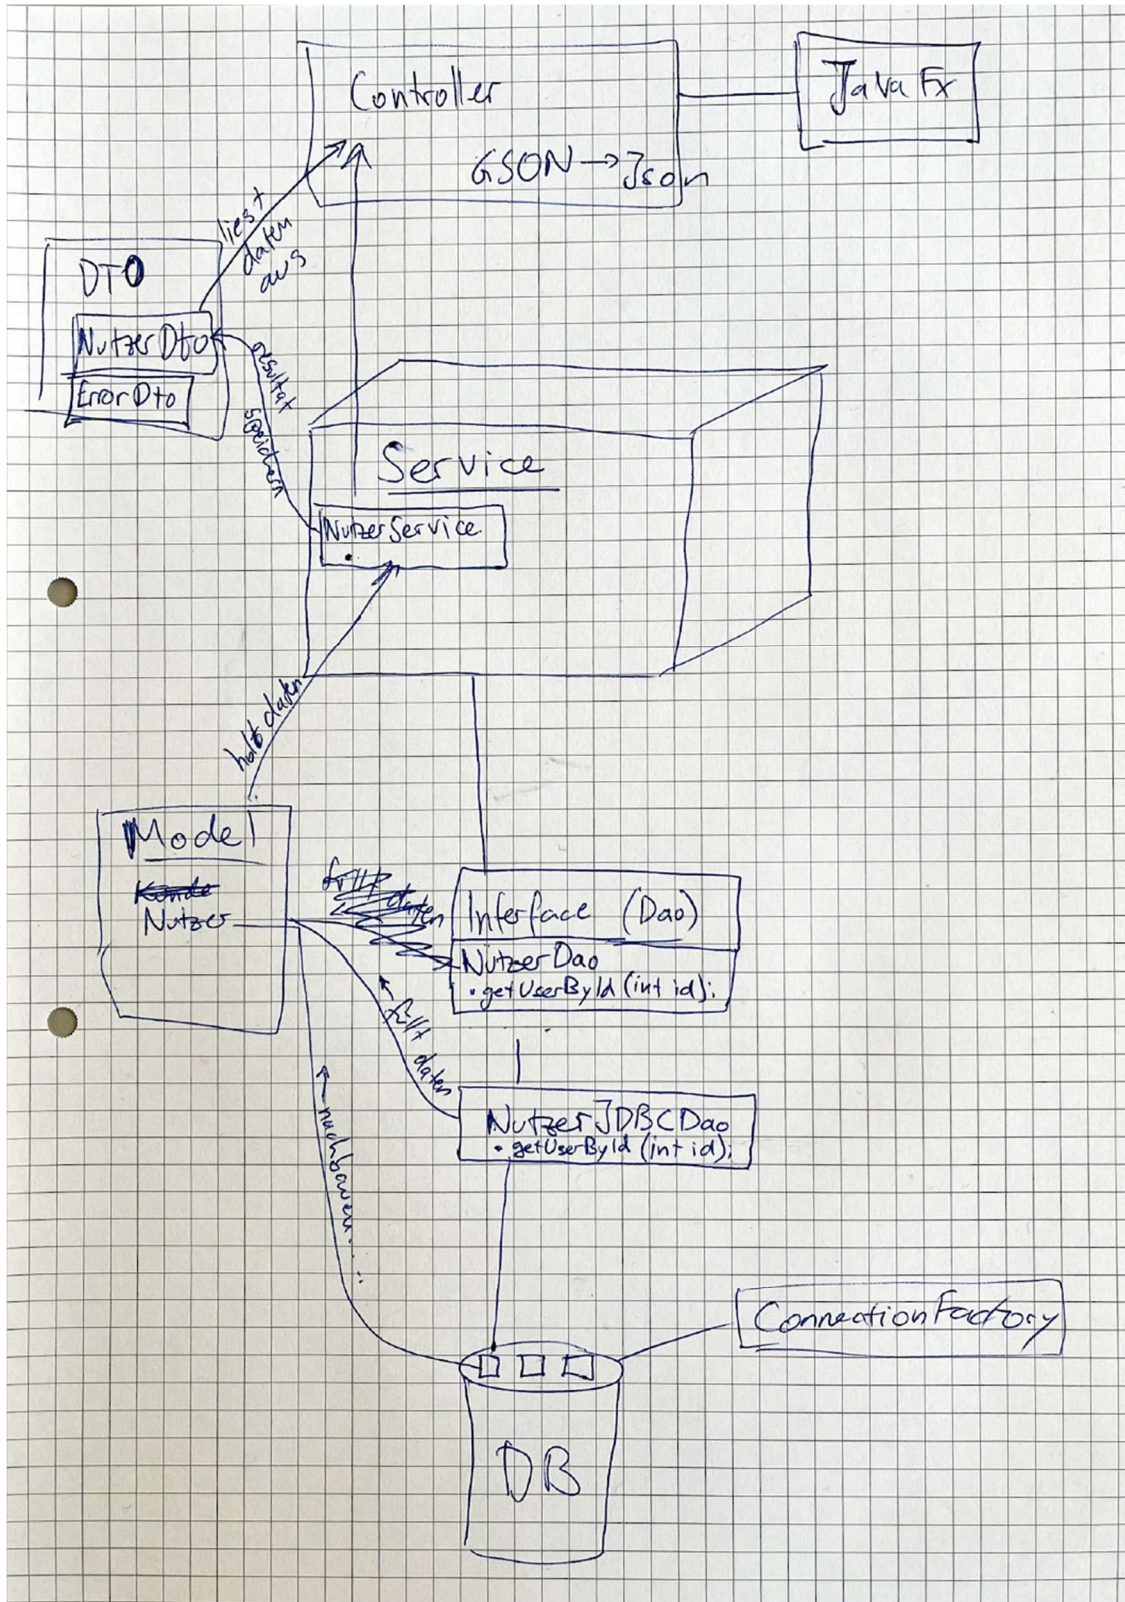 Controller
GSON → Json
JavaFx
liest
daten
aus
DTO
NutzerDto
ErrorDto
resultat
speichern
Service
NutzerService
holt daten
Model
Kunde
Nutzer
füllt
daten
Inferface (Dao)
NutzerDao
• getUserById (int id);
füllt
daten
NutzerJDBCDao
• getUserById (int id);
nachbauen...
ConnectionFactory
DB